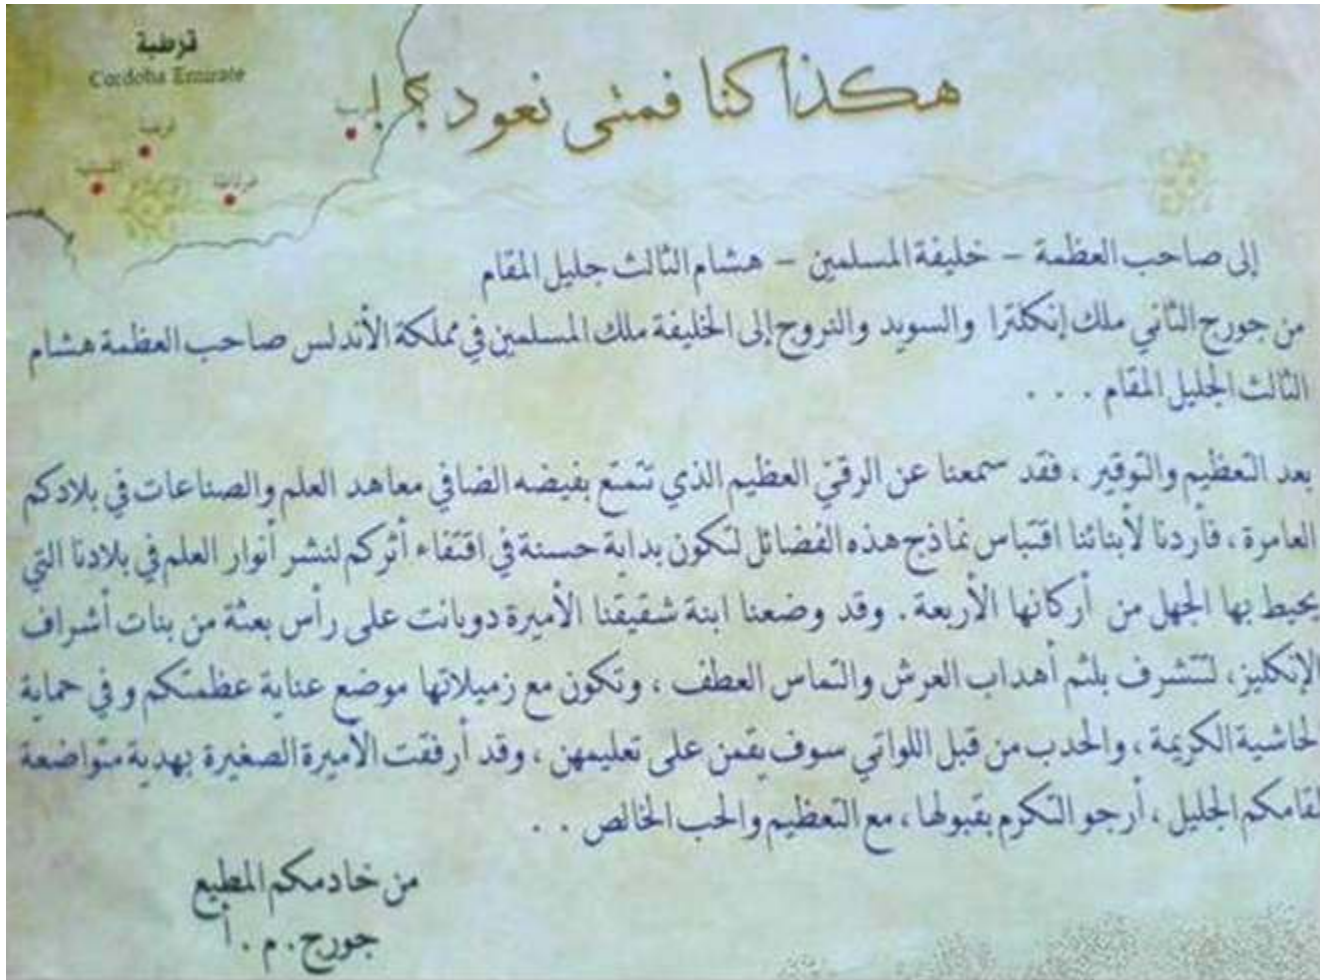 قرطبة
Cordoba Emirate
هكذا كنا فمتى نعود ؟!
قرطبة
غرناطة
إلى صاحب العظمة – خليفة المسلمين – هشام الثالث جليل المقام
من جورج الثاني ملك إنكلترا والسويد والنروج إلى الخليفة ملك المسلمين في مملكة الأندلس صاحب العظمة هشام
الثالث الجليل المقام . . .
بعد التعظيم والتوقير ، فقد سمعنا عن الرقيّ العظيم الذي تتمتع بفيضه الضافي معاهد العلم والصناعات في بلادكم
العامرة ، فأردنا لأبنائنا اقتباس نماذج هذه الفضائل لتكون بداية حسنة في اقتفاء أثركم لنشر أنوار العلم في بلادنا التي
يحيط بها الجهل من أركانها الأربعة . وقد وضعنا ابنة شقيقنا الأميرة دوبانت على رأس بعثة من بنات أشراف
الإنكليز، لتتشرف بلثم أهداب العرش والتماس العطف ، وتكون مع زميلاتها موضع عناية عظمتكم و في حماية
الحاشية الكريمة ، والحدب من قبل اللواتي سوف يقمن على تعليمهن ، وقد أرفقت الأميرة الصغيرة بهدية متواضعة
لمقامكم الجليل ، أرجو التكرم بقبولها ، مع التعظيم والحب الخالص . .
من خادمكم المطيع
جورج . م . أ